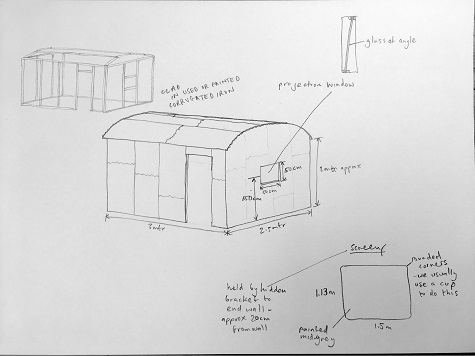 glass at angle
CLAD
IN USED OR PAINTED
CORRUGATED IRON
projection window
50cm
50cm
150cm
2mtr approx
3mtr
2.5mtr
screen
held by hidden
bracket to
end wall -
approx 20cm
from wall
1.13m
1.5m
painted
mid grey
rounded
corners
- we usually
use a cup
to do this